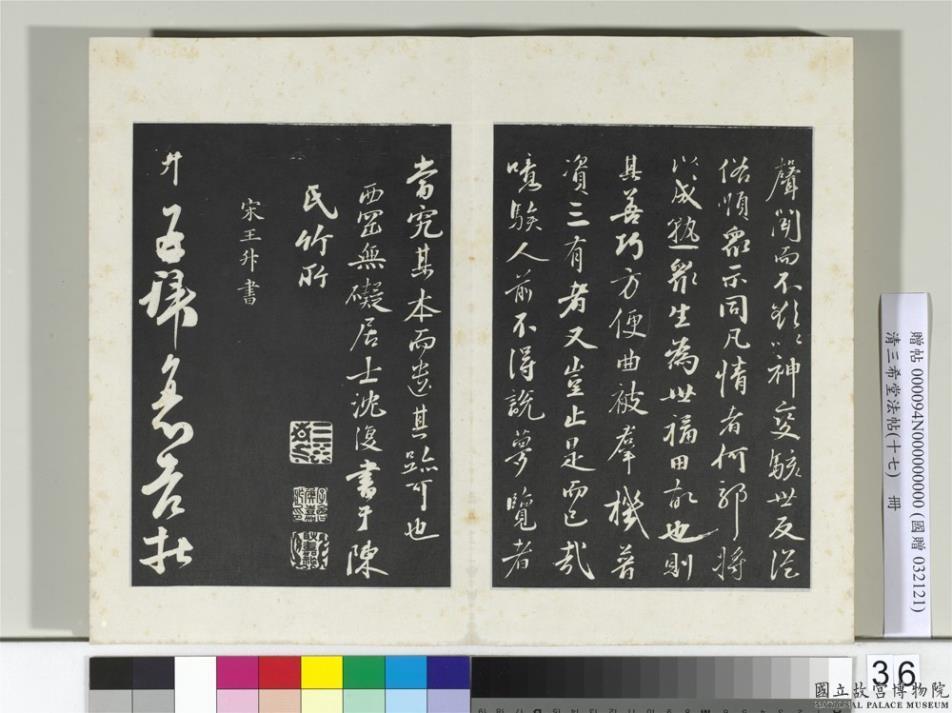 聲聞而不欲以神變駭世反從
俗順衆示同凡情者何耶將
以成熟衆生為世福田故也則
其善巧方便曲被羣機普
資三有者又豈止是而已哉
噫騃人前不得說夢覽者
當究其本而遺其跡可也
西無礙居士沈復書于陳
氏竹所
宋王升書
升
贈帖 000094N000000000 (國贈 032121)
清三希堂法帖(十七) 冊
36
國立故宮博物院
NATIONAL PALACE MUSEUM